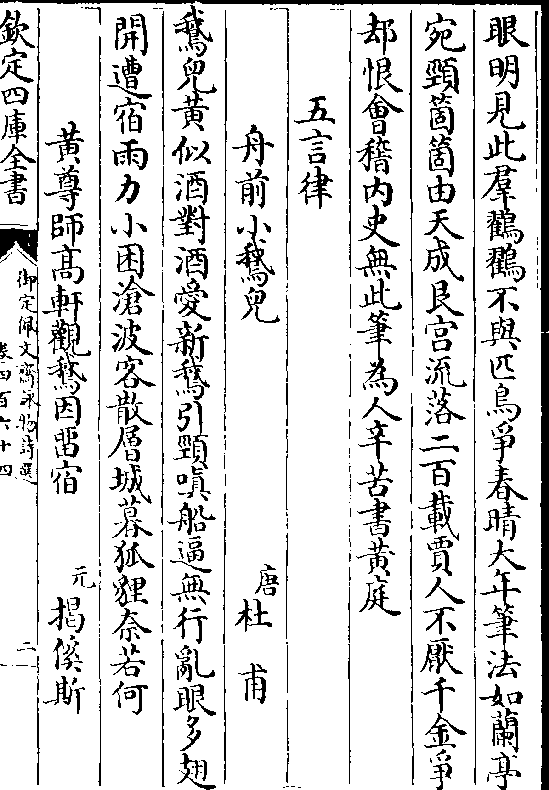 眼明見此羣鸜鸜不與匹鳥爭春晴大年筆法如蘭亭
宛頸箇箇由天成艮宫流落二百載賈人不厭千金爭
却恨會稽内史無此筆為人辛苦書黄庭
五言律
舟前小鵝兒 唐 杜甫
鵝兒黄似酒對酒愛新鵝引頸嗔船逼無行亂眼多翅
開遭宿雨力小困滄波客散層城暮狐狸奈若何
黄尊師髙軒觀鵞因畱宿 元 揭傒斯
欽定四庫全書
御定佩文齋詠物詩選
卷四百六十四
二